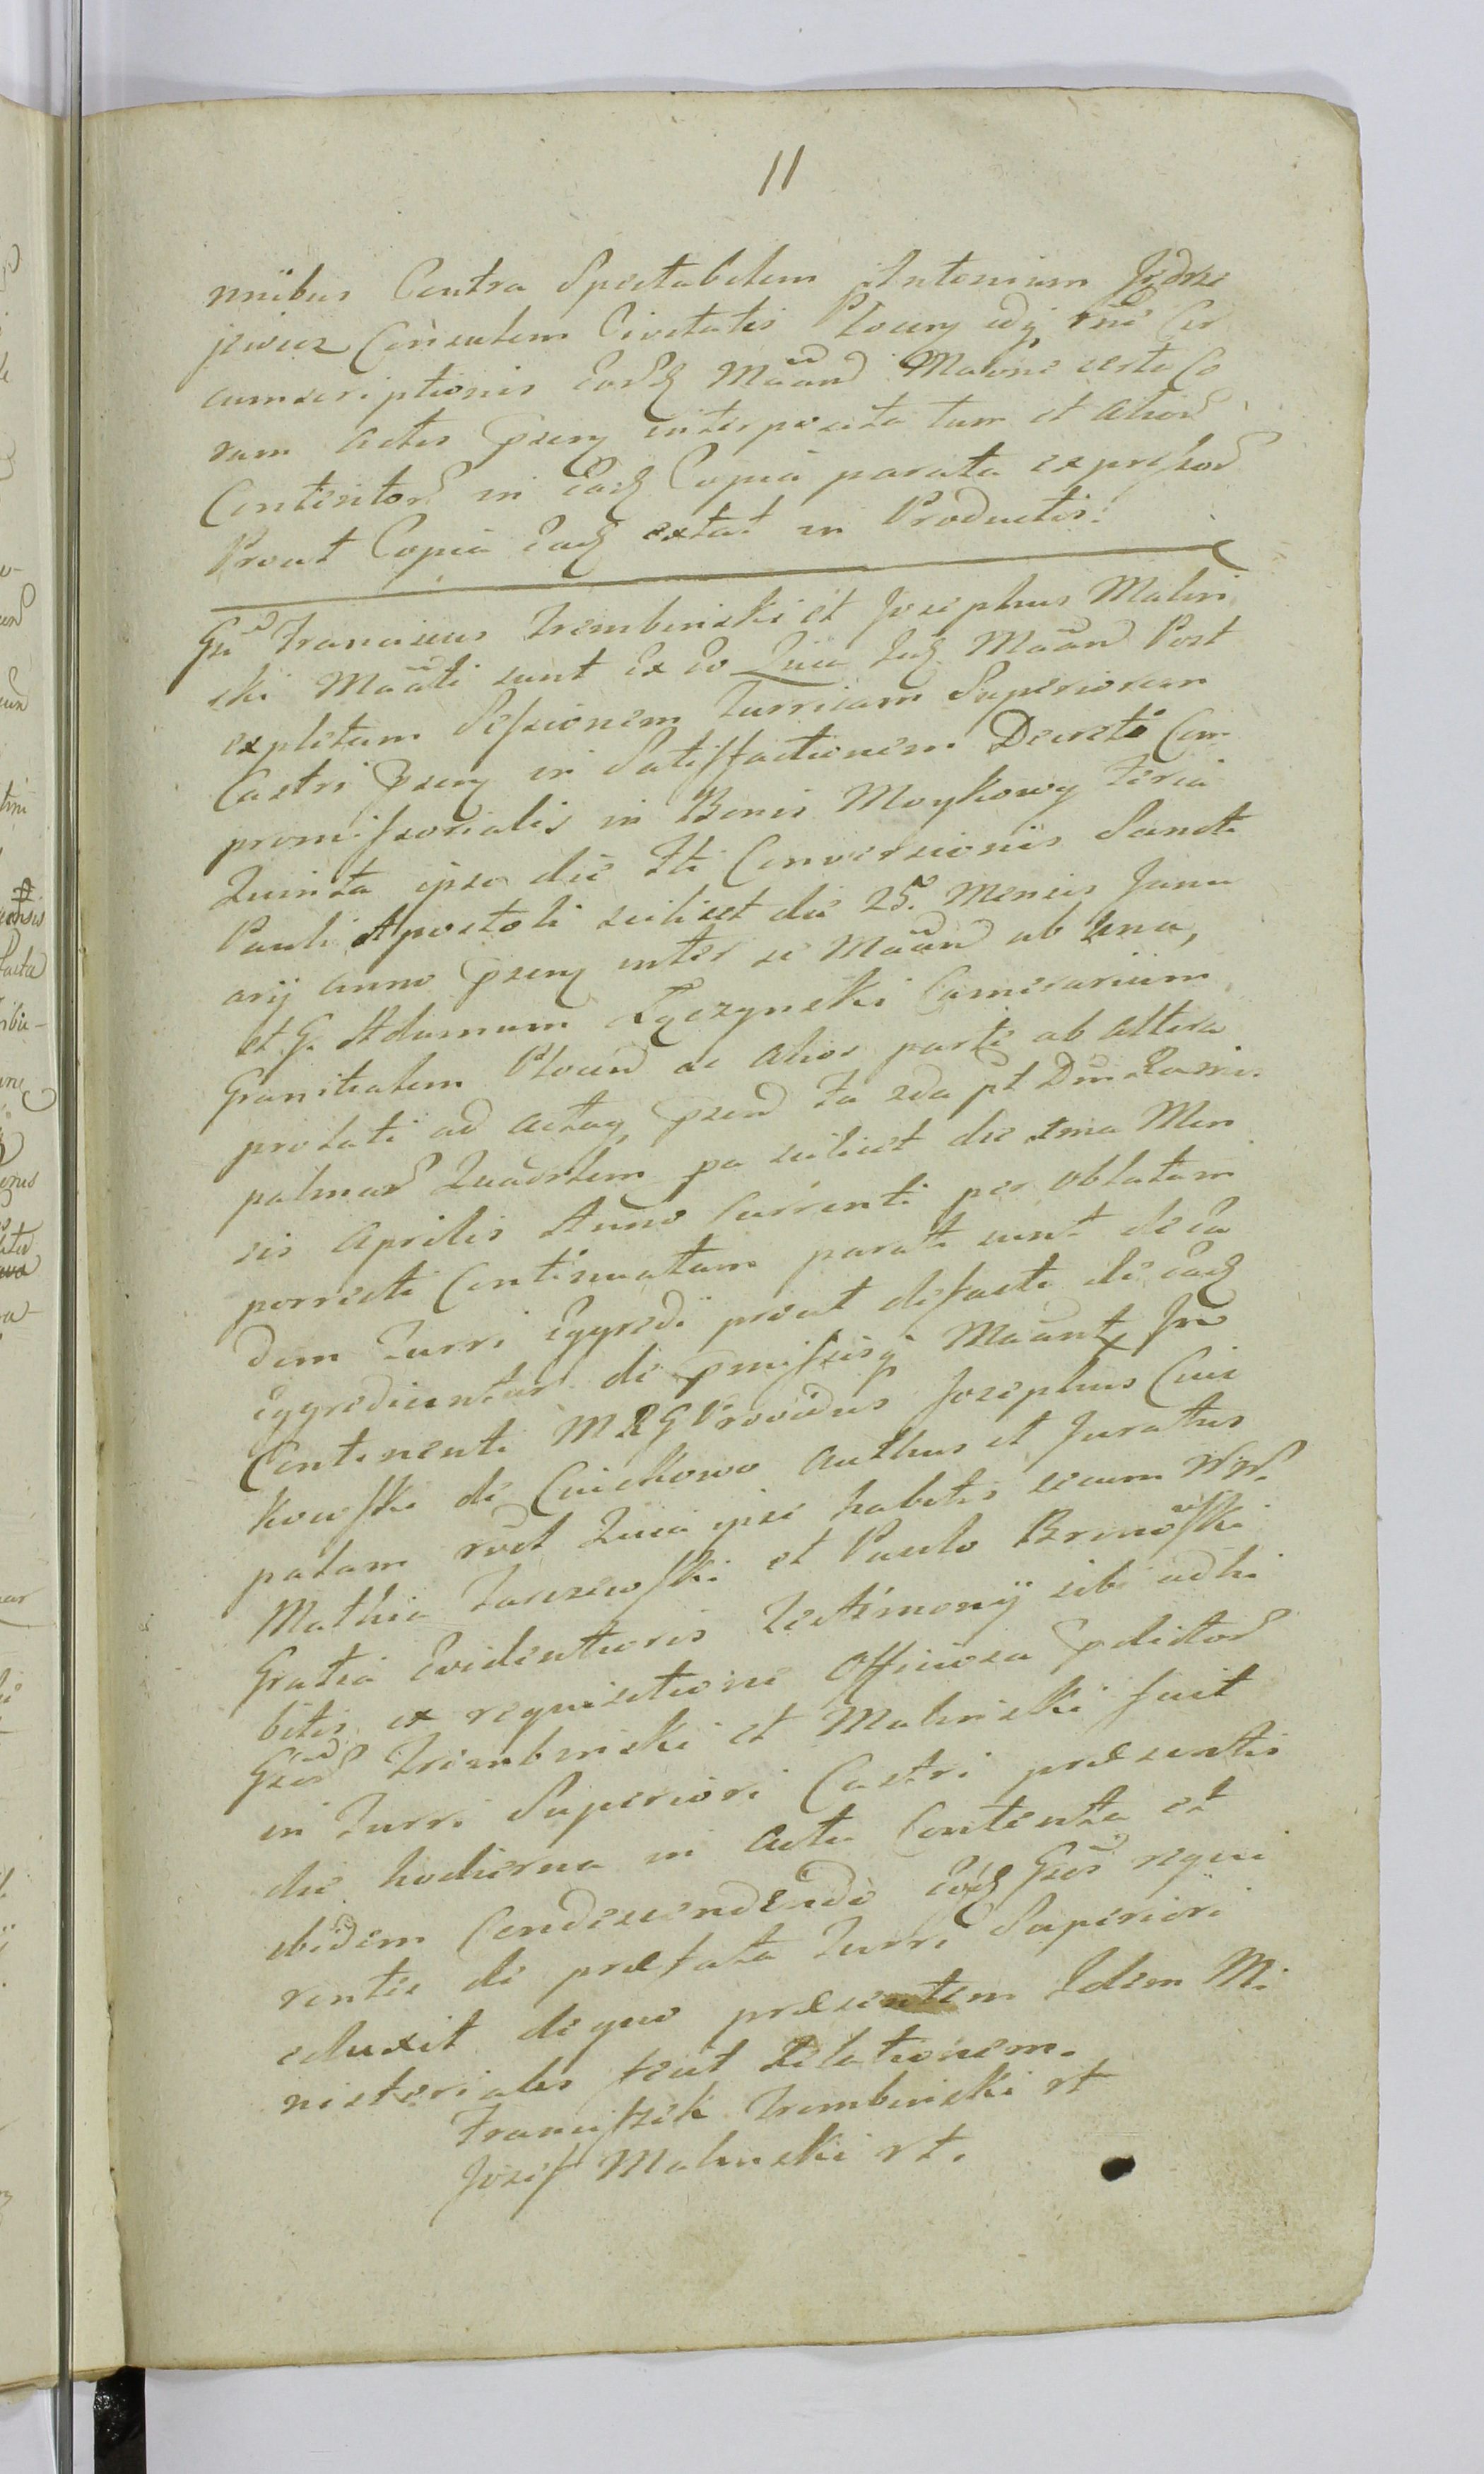 11
nnibus Contra Spectabilem Antonium Jędrze
jewicz Consulem Civitatis Plocen adq rñe Cir
cumscriptionis Earūd Mãand Maione certa Co
ram actis psen interposita tum et alior
Contentor in Ead Copia parata expressor
Prout Copia Ead extat in Productis.
Gsi Franciscus Trembinski et Josephus Malin
ski Mãati sunt Ex Eo Quia Iid Mãand Post
expletam Sessionem Turriam Superiorem
Castri psen in Satisfactionem Decreti Com
promissorialis in Bonis Moykowy Feria
Quinta ipso die Fti Conversionis Sancti
Pauli Apostoli scilicet die 25. Mensis Janu
arij anno psen inter se Mãand ab una,
et G. Adamum Łączynski Camerarium
Granitialem Plocen ac alios parte ab altera
prolati ad acta psen fa 2da pt Dm Rami
palmar Quadrlem pa scilicet die 1ma Men
sis Aprilis Anno Currenti per oblatam
porrecti Continuatam parati sunt de Ea
dem Turri Eggredi prout defacto de Ead
Eggrediuntur de pmissisq Mãant, In
Continenti M R G Providus Josephus Cwie
kowski de Cwiekowo authus et Juratus
palam rvit Quia ipse habitis secum NN.
Mathia Jaszewski et Paulo Brinowski
Gratia Evidentioris Testimonij sibi adhi
bitis ex requisitione officiosa pdictor
Gsor Trembinski et Malinski fuit
in Turri Superiori Castri præsentis
die hodierna in actu Contenta et
ibidem Condescendendo Eosd Gsos requi
rentes de præfata Turri Superiori
eduxit de quo præsentem Idem Mi
nisterialis fecit Relationem.
Franciszek Trembinski rt
Jozef Malinski rt.